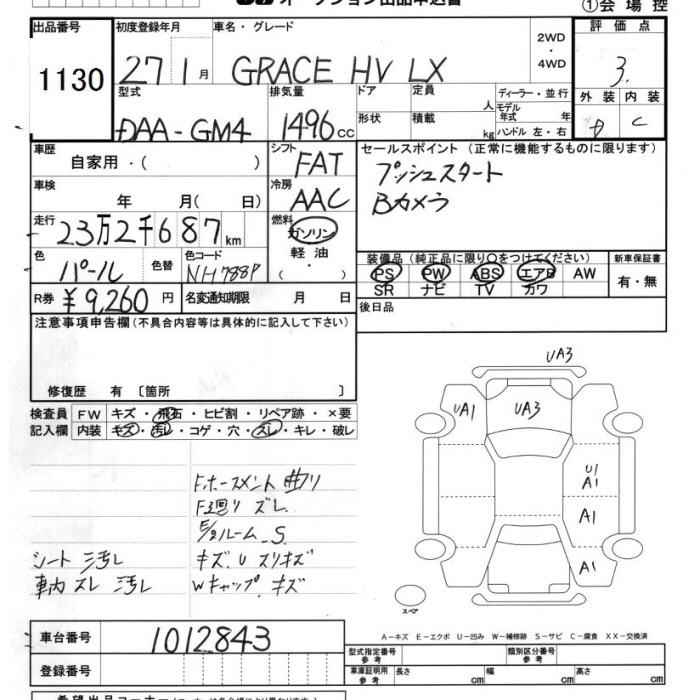 ①会場控
出品番号 初度登録年月 車名・グレード 2WD・4WD 評価点
1130 27 1月 GRACE HV LX 3.
型式 排気量 ドア 定員 人 ディーラー・並行 外装 内装
モデル年式 年
DAA-GM4 1496cc 形状 積載 kg ハンドル 左・右 D C
車歴 シフト セールスポイント(正常に機能するものに限ります)
自家用・( ) FAT プッシュスタート
車検 冷房 Bカメラ
年 月( 日) AAC
走行 燃料
23万2千687km ガソリン
軽油
・( )
色 色替 色コード 装備品(純正品に限り○をつけてください) 新車保証書
パール NH788P PS PW ABS エアB AW 有・無
SR ナビ TV カワ
R券 ¥9,260円 名変通知期限 月 日 後日品
注意事項申告欄(不具合内容等は具体的に記入して下さい)
修復歴 有〔箇所 〕
検査員 FW キズ・飛石・ヒビ割・リペア跡・×要
記入欄 内装 キズ・汚レ・コゲ・穴・スレ・キレ・破レ
UA3
UA1 UA3
U1
A1
A1
A1
スペア
F.ホースメント 曲り
F3廻り ズレ
E/2ルーム S
シート 汚レ キズ.U スリキズ
車内 スレ 汚レ Wキャップ.キズ
A-キズ E-エクボ U-凹み W-補修跡 S-サビ C-腐食 XX-交換済
車台番号 1012843 型式指定番号 参考 類別区分番号 参考
登録番号 車庫証明用 参考 長さ cm 幅 cm 高さ cm